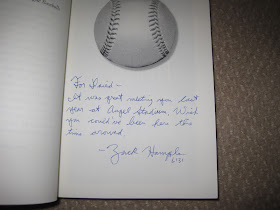 For David -
It was great meeting you last
year at Angel Stadium. Wish
you could've been here this
time around.
- Zack Hample